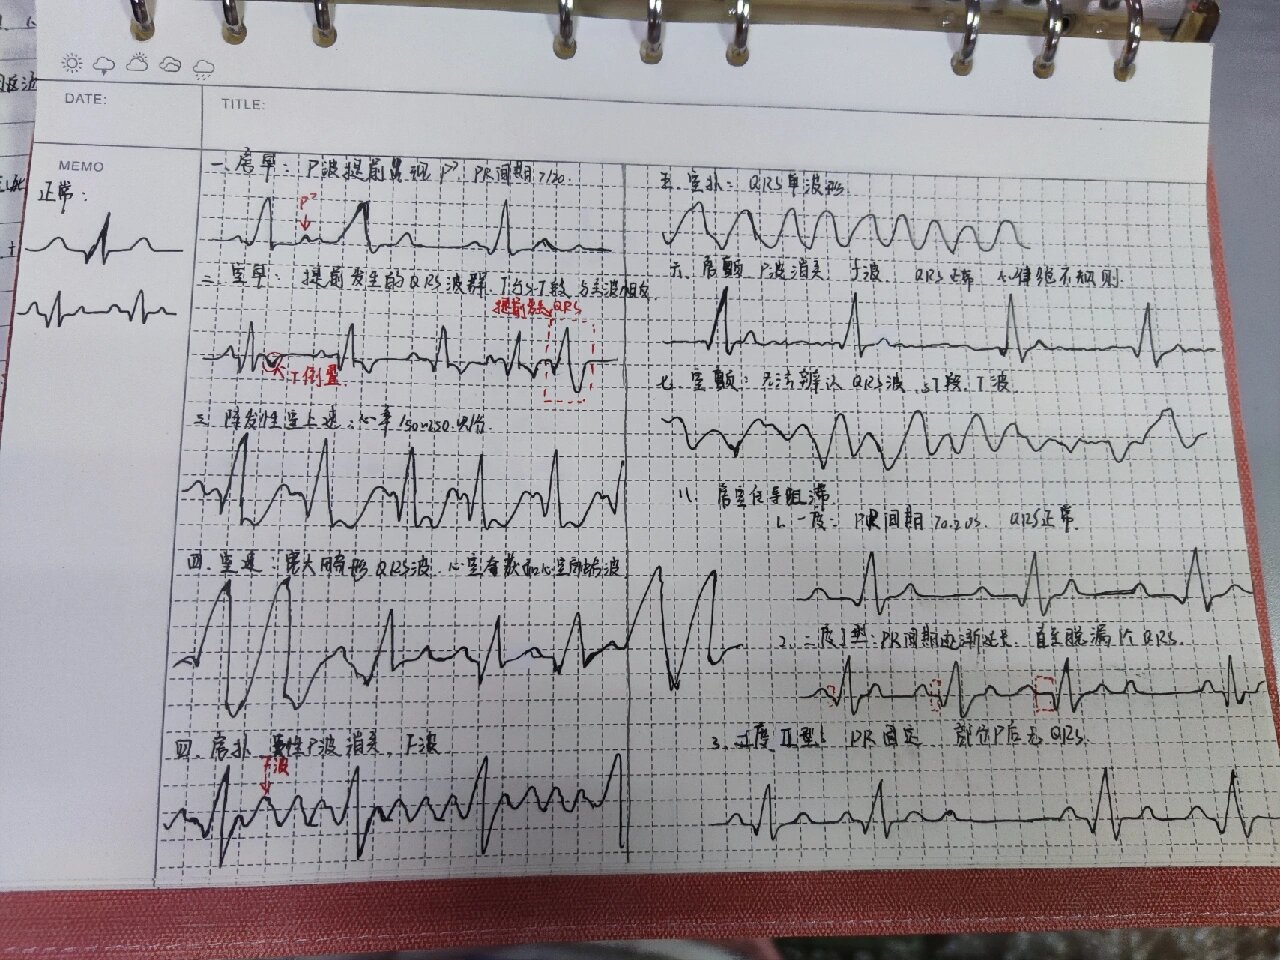 DATE:
TITLE:
MEMO
正常:
一. 房早: P波提前出现 P' PR间期
P'
二. 室早: 提前发生的QRS波群. T与主波相反
提前 QRS
T倒置
三 阵发性室上速: 心率150~250次/分.
四. 室速: 宽大畸形QRS波. 心室夺获 心室融合波
四. 房扑 P波消失, F波
F波
五. 室扑: QRS单波形
六. 房颤 P波消失 f波. QRS正常 心律绝不规则.
七 室颤: 无法辨认QRS波. ST段. T波
八 房室传导阻滞
1. 一度: PR间期>0.20s. QRS正常.
2. 二度I型: PR间期逐渐延长. 直至脱漏 QRS.
3. 二度II型: PR固定 部分P后无QRS.